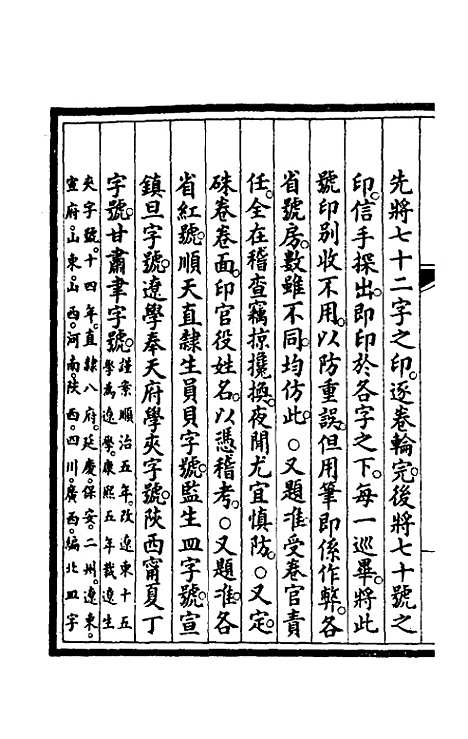 先將七十二字之印。逐卷輪完。後將七十號之
印。信手探出。即印於各字之下。每一巡畢。將此
號印別收不用。以防重誤。但用筆即係作弊。各
省號房。數雖不同。均仿此。○又題准受卷官責
任。全在稽查竊掠攙換。夜閒尤宜慎防。○又定。
硃卷卷面。印官役姓名。以憑稽考。○又題准。各
省紅號。順天直隸生員貝字號。監生皿字號。宣
鎮旦字號。遼學奉天府學夾字號。陝西甯夏丁
字號。甘肅聿字號。謹案順治五年。改遼東十五
學為遼學。康熙五年。裁遼生
夾字號。十四年。直隸八府。延慶。保安。二州。遼東。
宣府。山東。山西。河南。陝西。四川。廣西。編北皿字